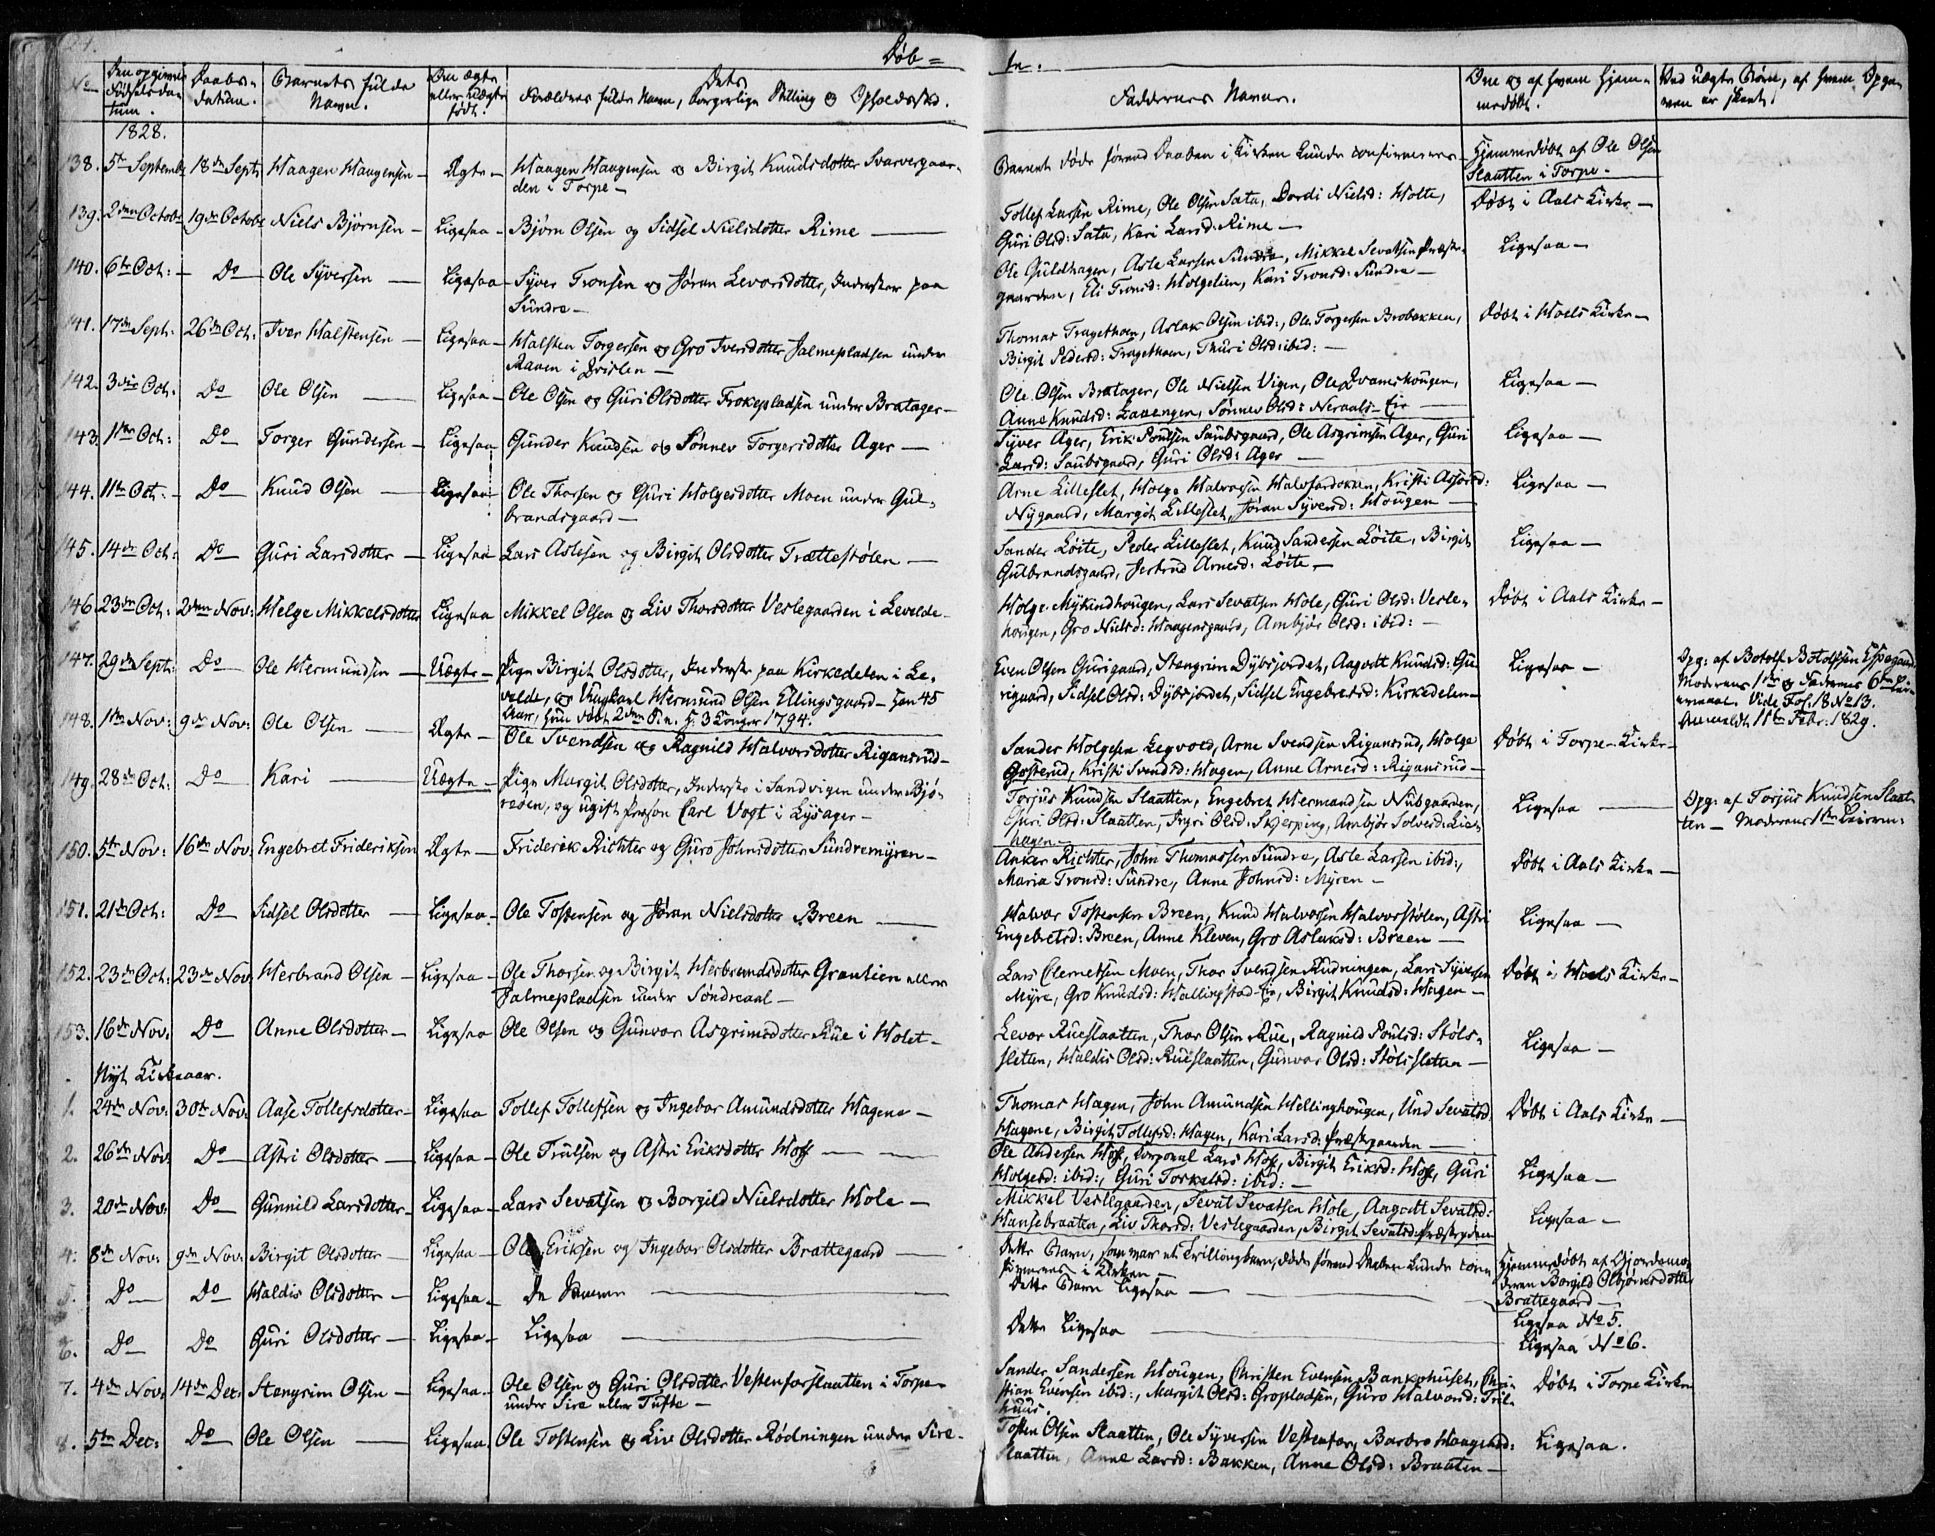 24.
Døb=
te.
No
Den opgivne Fødselsdatum.
Daabs-datum.
Barnets fulde Navn.
Om ægte eller uægte født.
Forældres fulde Navn, Dets borgerlige Stilling og Opholdssted.
Faddernes Navne.
Om og af hvem hjemmedøbt.
Ved uægte Børn, af hvem Opgaven er skeet.
1828.
138. 5te Septemb: 18de Sept: Haagen Haagensen — Ægte — Haagen Haagensen og Birgit Knudsdotter Svarvergaar-
den i Torpe —
Barnet døde førend Daaben i Kirken kunde confirmeres — Hjemmedøbt af Ole Olsen
Slaatten i Torpe.
139. 2den Octobr 19de Octobr Niels Bjørnsen — Ligesaa — Bjørn Olsen og Sidsel Nielsdotter Rime —
Tollef Larsen Rime, Ole Olsen Sata, Dordi Nielsd: Holte, Døbt i Aals Kirke —
Guri Olsd: Sata, Kari Larsd: Rime —
140. 6te Oct: — Do — Ole Syversen — Ligesaa — Syver Tronsen og Jøran Levorsdotter, Inderster paa
Sundre —
Ole Guldhagen, Asle Larsen Sundre, Mikkel Sevatsen Præste- Ligesaa —
gaarden, Eli Tronsd: Holgelien, Kari Tronsd: Sundre —
141. 17de Sept: 26de Oct: Iver Halstensen — Ligesaa — Halsten Torgersen og Gro Iversdotter Jalmepladsen under
Maaen i Qvislen —
Thomas Tragethoen, Aslak Olsen ibid:, Ole Torgersen Brobakken, Døbt i Hoels Kirke —
Birgit Pedersd: Tragethoen, Thuri Olsd: ibid: —
142. 3die Oct: Do Ole Olsen — Ligesaa — Ole Olsen og Guri Olsdotter Trokepladsen under Bratager —
Ole Olsen Bratager, Ole Nielsen Vigen, Ole Qvamshougen, Ligesaa —
Anne Knudsd: Laaengen, Sønnev Olsd: Neraals-Eie —
143. 11te Oct: Do Torger Gundersen — Ligesaa — Gunder Knudsen og Sønnev Torgersdotter Ager —
Syver Ager, Erik Poulsen Saubsgaard, Ole Asgrimsen Ager, Guri Ligesaa —
Larsd: Saubsgaard, Guri Olsd: Ager —
144. 11te Oct: — Do — Knud Olsen — Ligesaa — Ole Thorsen og Guri Holgersdotter Moen under Gul-
brandsgaard —
Arne Lilleslet, Holge Halvorsen Halvfardokken, Kristi Assorsd: Ligesaa —
Nygaard, Margit Lilleslet, Jøran Syversd: Hougen —
145. 14de Oct: Do — Guri Larsdotter — Ligesaa Lars Aslesen og Birgit Olsdotter Trættestølen —
Sander Løite, Peder Lilleslet, Knud Sandersen Løite, Birgit Ligesaa —
Gulbrandsgaard, Jertrud Arnesd: Løite —
146 23de Oct: 2den Nov: Helge Mikkelsdotter Ligesaa Mikkel Olsen og Liv Thorsdotter Veslegaarden i Levelde —
Holge Mykindhougen, Lars Sevatsen Hole, Guri Olsd: Vesle- Døbt i Aals Kirke —
hougen, Gro Nielsd: Haagensgaard, Ambjør Olsd: ibid: —
147. 29de Sept: Do — Ole Hermundsen — Uægte — Pige Birgit Olsdotter, Inderste paa Kirkedelen i Le-
velde, og Ungkarl Hermund Olsen Ellingsgaard — han 45
Aar, hun døbt 2den S: e. H: 3 Konger 1794.
Even Olsen Gurigaard, Stengrim Dybsjordet, Aagodt Knudsd: Gu- Ligesaa —
rigaard, Sidsel Olsd: Dybsjordet, Sidsel Engebretsd: Kirkedelen —
Opg: af Botolf Botolfsen Espegaard
Moderens 1ste og Faderens 6te Lei-
ermaal. Vide Fol: 18 No 13.
Anmeldt 11te Febr: 1829.
148. 1ste Nov: 9de Nov: Ole Olsen — Ægte — Ole Svendsen og Ragnild Halvorsdotter Rigansrud —
Sander Holgesen Legvold, Arne Svendsen Rigansrud, Holge Døbt i Torpe Kirke —
Qosterud, Kristi Svendsd: Hagen, Anne Arnesd: Rigansrud —
149. 28de Oct: Do Kari — Uægte — Pige Margit Olsdotter, Inderste i Sandvigen under Bjø-
reøen, og ugift Person Carl Vogt i Lysager —
Torjus Knudsen Slaatten, Engebret Hermandsen Nubgaarden, Ligesaa —
Guri Olsd: Slaatten, Ingri Olsd: Skjerping, Ambjør Solversd: Lien-
hagen —
Opg: af Torjus Knudsen Slaat-
ten — Moderens 1ste Leierm:
150. 5te Nov: 16de Nov: Engebret Frideriksen Ægte — Friderik Richter og Guro Johnsdotter Sundremyren —
Anker Richter, John Thomassen Sundre, Asle Larsen ibid:, Døbt i Aals Kirke —
Maria Tronsd: Sundre, Anne Johnsd: Myren —
151. 21de Oct: Do Sidsel Olsdotter — Ligesaa — Ole Tostensen og Jøran Nielsdotter Breen —
Halvor Tostensen Breen, Knud Halvorsen Halvorstølen, Astri Ligesaa —
Engebretsd: Breen, Anne Kleven, Gro Aslaksd: Breen —
152. 23de Oct: 23de Nov Herbrand Olsen — Ligesaa — Ole Thorsen og Birgit Herbrandsdotter Grønlien eller
Jalmepladsen under Søndreaal —
Lars Clemetsen Moen, Thor Svendsen Rudningen, Lars Syversen Døbt i Hoels Kirke —
Myre, Gro Knudsd: Hallingstad-Eie, Birgit Knudsd: Hagen —
153. 16de Nov: Do Anne Olsdotter — Ligesaa Ole Olsen og Gunvor Asgrimsdotter Rue i Holet —
Levor Rueslaatten, Thor Olsen Rue, Ragnild Poulsd: Støls- Ligesaa —
sletten, Haldis Olsd: Rueslaatten, Gunvor Olsd: Stølssletten —
Nyt Kirkeaar.
1. 24de Nov: 30te Nov: Aase Tollefsdotter — Ligesaa Tollef Tollefsen og Ingebor Amundsdotter Hagene —
Thomas Hagen, John Amundsen Hellinghougen, Und Sevatsd: Døbt i Aals Kirke —
Hagene, Birgit Tollefsd: Hagen, Kari Larsd: Præstgaarden —
2. 26de Nov Do Astri Olsdotter — Ligesaa — Ole Trulsen og Astri Eriksdotter Hoff —
Ole Andersen Hoff, Corporal Lars Hoff, Birgit Eriksd: Hoff, Guri Ligesaa —
Holgersd: ibid:, Guri Torkelsd: ibid: —
3. 20de Nov: Do Gunnild Larsdotter — Ligesaa — Lars Sevatsen og Borgild Nielsdotter Hole —
Mikkel Veslegaarden, Sevat Sevatsen Hole, Aagodt Sevatsd: Ligesaa —
Hansebraaten, Liv Thorsd: Veslegaarden, Birgit Sevatsd: Præstgrden
4. 8de Nov: 9de Nov: Birgit Olsdotter — Ligesaa — Ole Eriksen og Ingebor Olsdotter Brattegaard —
Dette Barn, som var et Trillingbarn, døde førend Daaben kunde con- Hjemmedøbt af Gjordemo-
firmeres i Kirken — deren Borgild Olbjørnsdotter
Brattegaard —
5. Do Do Haldis Olsdotter — Ligesaa — De Samme —
Dette Barn Ligesaa — Ligesaa No 5.
6. Do Do Guri Olsdotter — Ligesaa — Ligesaa —
Dette Ligesaa — Ligesaa No 6.
7. 4de Nov: 14de Dec: Stengrim Olsen — Ligesaa — Ole Olsen og Guri Olsdotter Vestenforslaatten i Torpe
under Sire eller Tufte —
Sander Sandersen Hougen, Christen Evensen Bankehuset, Chri- Døbt i Torpe Kirke
stian Evensen ibid:, Margit Olsd: Gropladsen, Guro Halvorsd: Tril-
huus.
8. 5te Dec: Do Ole Olsen — Ligesaa. Ole Tostensen og Liv Olsdotter Rødningen under Sire —
Tosten Olsen Slaatten, Ole Syversen Vestenfor, Barbro Haagensd: Ligesaa.
Slaatten, Anne Larsd: Bakken, Anne Olsd: Braaten —